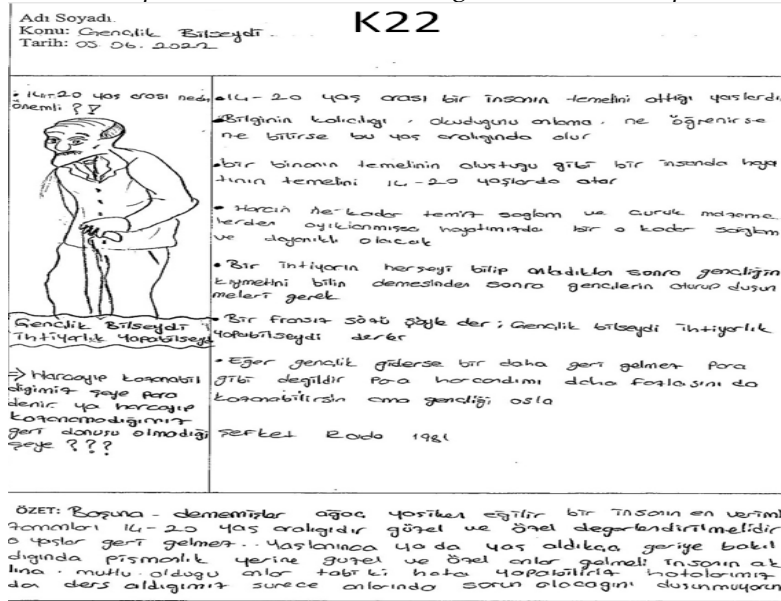 Adı Soyadı.
K22
Konu: Gençlik Bilseydi.
Tarih: 05.06.2022
• 14-20 yaş arası neden
önemli ? !
Gençlik Bilseydi
ihtiyarlık yapabilseydi
⇒ Harcayıp kazanabil
diğimiz şeye para
denir ya harcayıp
kazanamadığımız
geri dönüşü olmadığı
şeye ???
• 14-20 yaş arası bir insanın temelini attığı yaşlardı
• Bilginin kalıcılığı, okuduğunu anlama, ne öğrenirse
ne bilirse bu yaş aralığında olur
• bir binanın temelinin oluştuğu gibi bir insanda haya
tının temelini 14-20 yaşlarda atar
• Harcın ne kadar temiz sağlam ve çürük malzeme
lerden ayıklanmışsa hayatımızda bir o kadar sağlam
ve dayanıklı olacak
• Bir ihtiyarın herşeyi bilip anladıktan sonra gençliğin
kıymetini bilin demesinden sonra gençlerin oturup düşün
meleri gerek
• Bir Fransız sözü şöyle der; Gençlik bilseydi ihtiyarlık
yapabilseydi derler
• Eğer gençlik giderse bir daha geri gelmez Para
gibi değildir Para harcandımı daha fazlasını da
kazanabilirsin ama gençliği asla
Şevket Rado 1981
ÖZET: Boşuna dememişler ağaç yaşken eğilir bir insanın en verimli
zamanları 14-20 yaş aralığıdır güzel ve özel değerlendirilmelidir
o yaşlar geri gelmez. Yaşlanınca ya da yaş aldıkça geriye bakıl
dığında pişmanlık yerine güzel ve özel anlar gelmeli insanın ak
lına. mutlu olduğu anlar tabi ki hata yapabiliriz hatalarımız
dan ders aldığımız sürece onlarında sorun olacağını düşünmüyorum